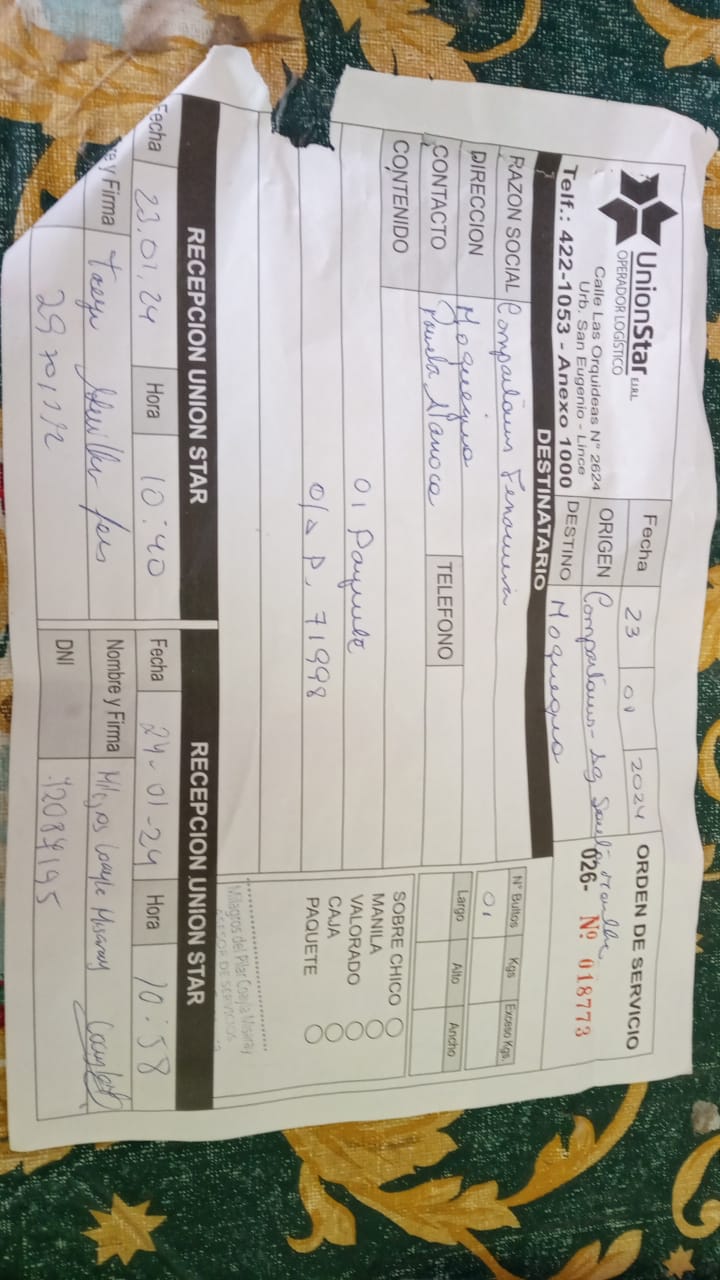 UnionStar E.I.R.L
OPERADOR LOGÍSTICO
Calle Las Orquideas N° 2624
Urb. San Eugenio - Lince
Telf.: 422-1053 - Anexo 1000
Fecha 23 01 2024
ORIGEN
DESTINO Moquegua
ORDEN DE SERVICIO
026- Nº 018773
DESTINATARIO
RAZON SOCIAL
DIRECCION Moquegua
CONTACTO
TELEFONO
CONTENIDO
01 Paquete
P. 71998
N° Bultos Kgs Exceso Kgs.
01
Largo Alto Ancho
SOBRE CHICO
MANILA
VALORADO
CAJA
PAQUETE
Milagros del Pilar
ASESOR DE SERVICIOS
RECEPCION UNION STAR
Fecha 23.01.24 Hora 10:40
y Firma
RECEPCION UNION STAR
Fecha 24-01-24 Hora 10:58
Nombre y Firma Milagros
DNI 42087195